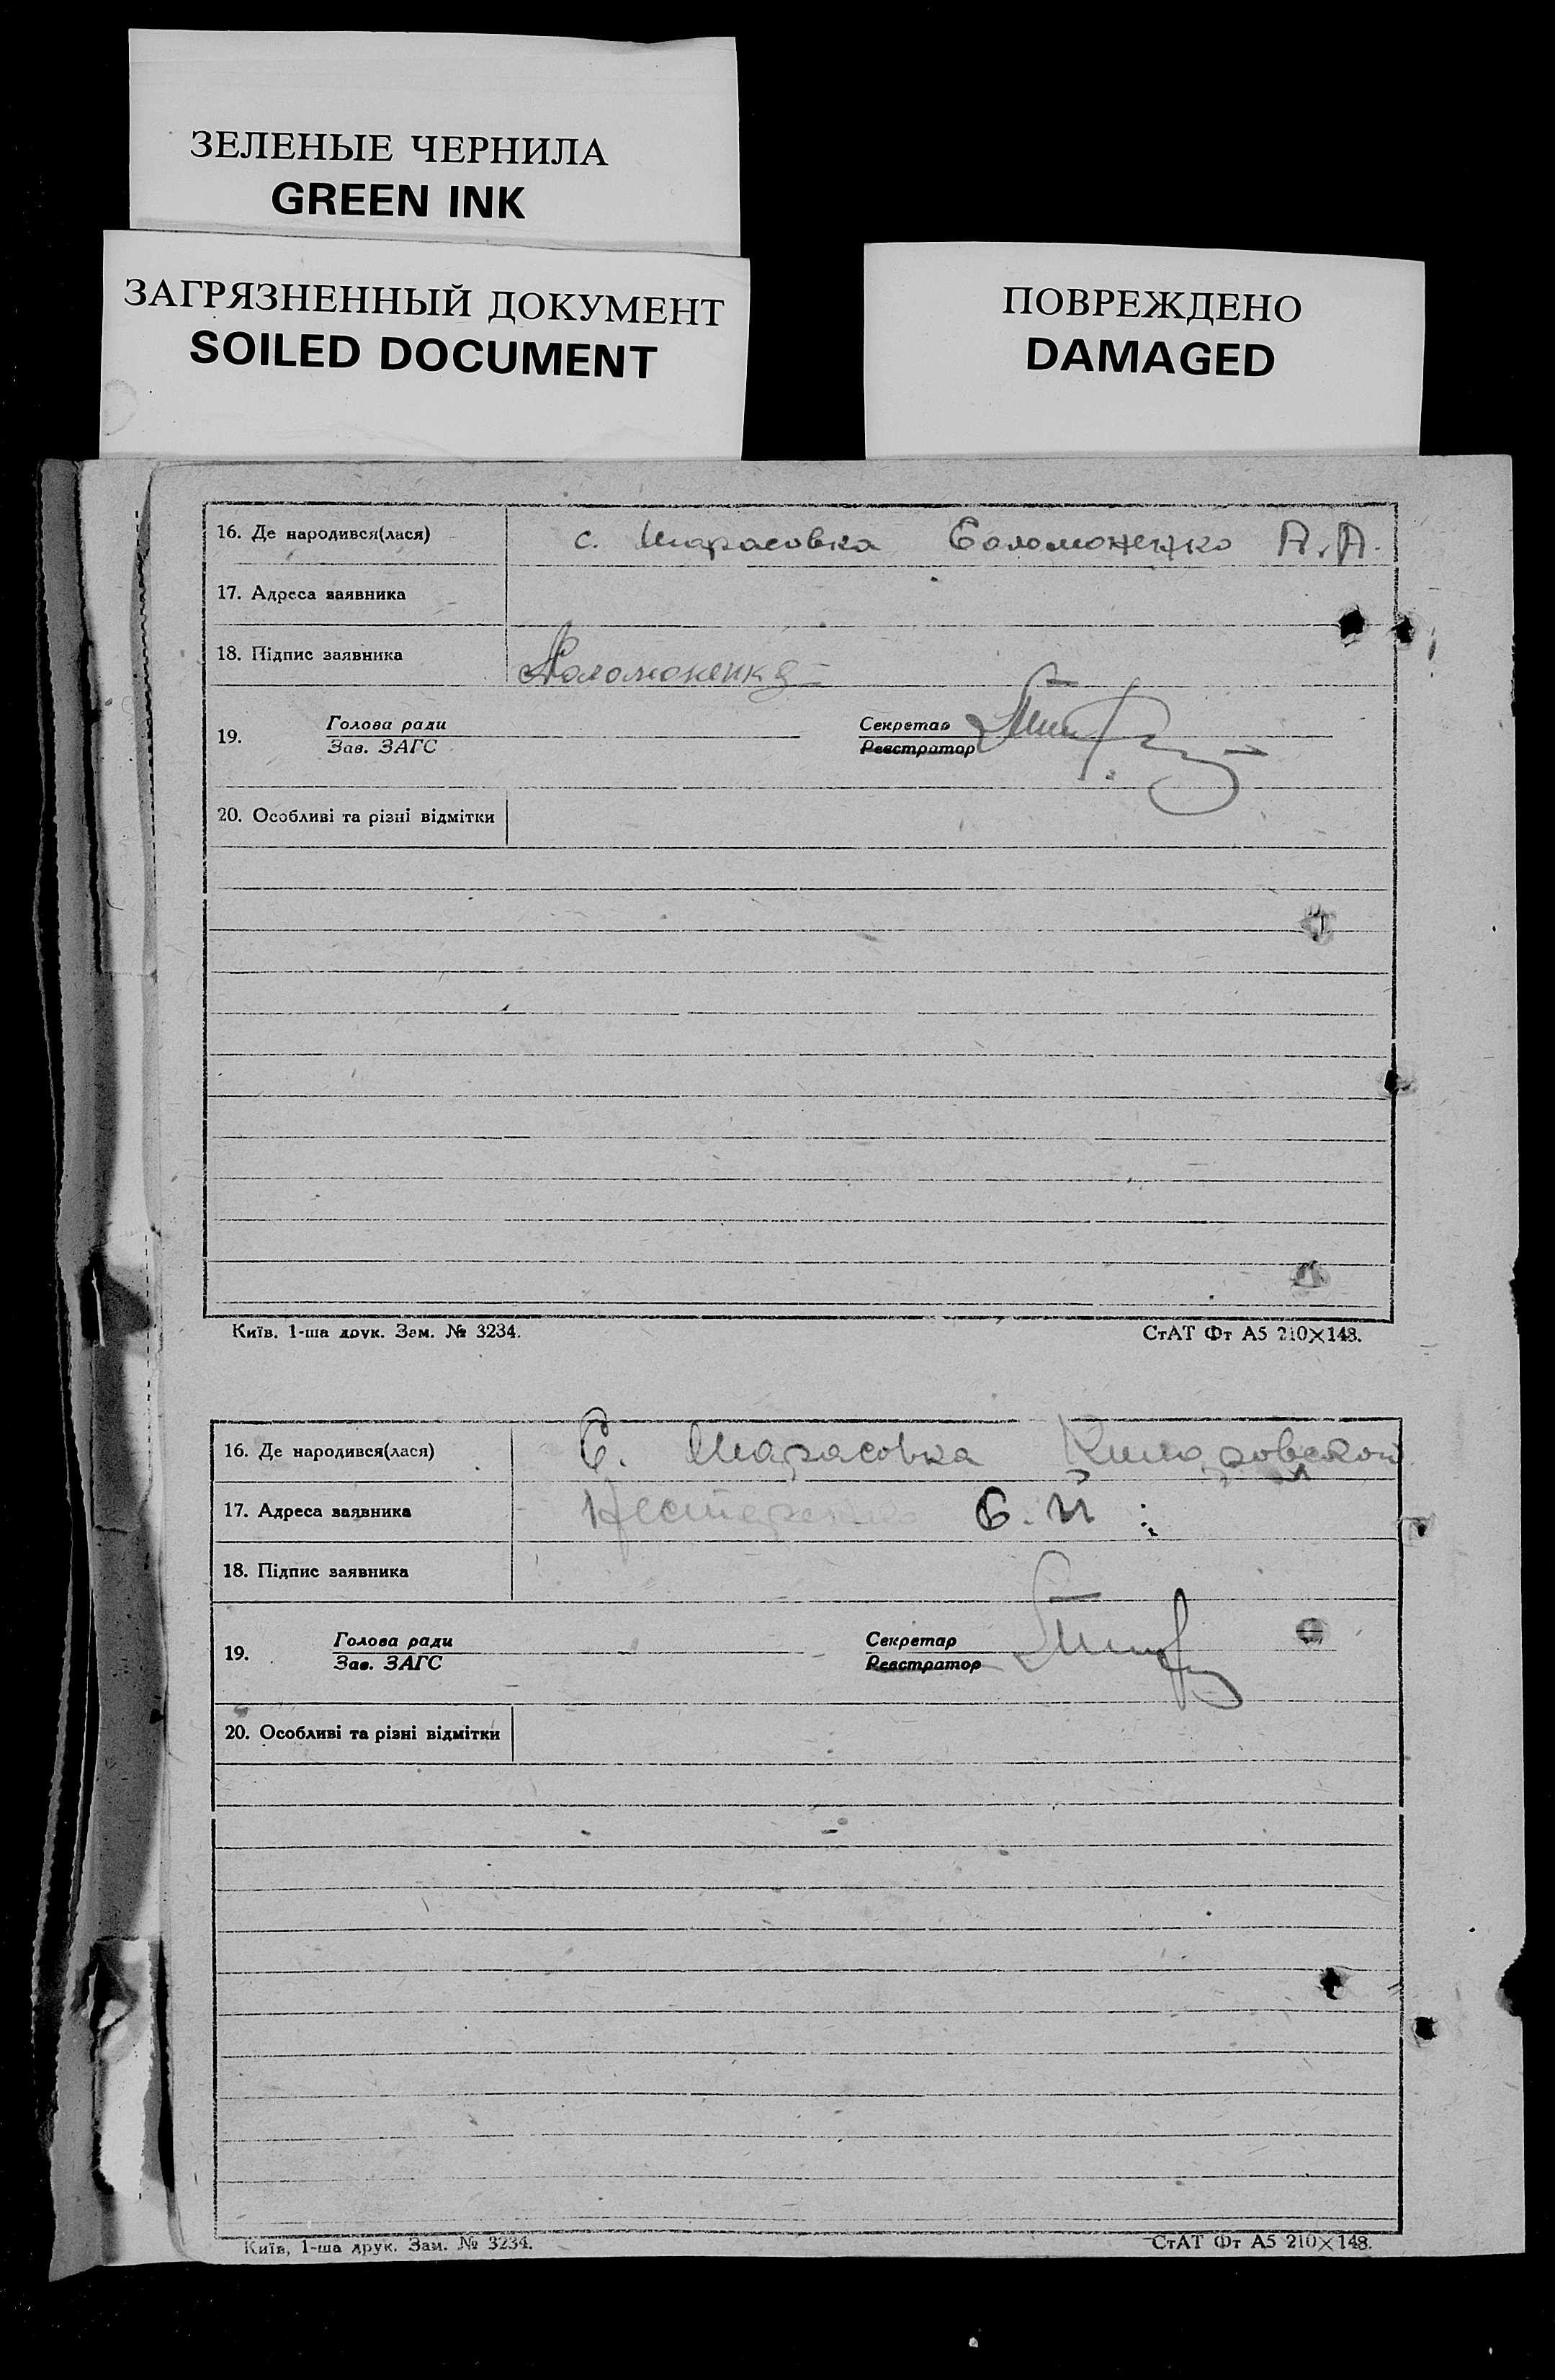 ЗЕЛЕНЫЕ ЧЕРНИЛА
GREEN INK
ЗАГРЯЗНЕННЫЙ ДОКУМЕНТ
SOILED DOCUMENT
ПОВРЕЖДЕНО
DAMAGED
16. Де народився(лася) с. Тарасовка Соломоненко А. А.
17. Адреса заявника
18. Підпис заявника Соломоненко
19. Голова ради Секретар
Зав. ЗАГС Реєстратор
20. Особливі та різні відмітки
Київ, 1-ша друк. Зам. № 3234. СтАТ Фт А5 210×148.
16. Де народився(лася) С. Тарасовка
17. Адреса заявника Нестеренко С. И :
18. Підпис заявника
19. Голова ради Секретар
Зав. ЗАГС Реєстратор
20. Особливі та різні відмітки
Київ, 1-ша друк. Зам. № 3234. СтАТ Фт А5 210×148.